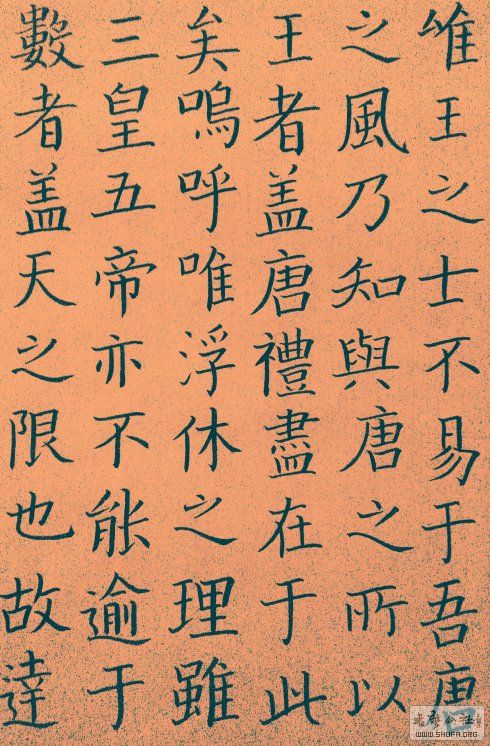 唯王之士不易于吾唐
之風乃知與唐之所以
王者盖唐禮盡在于此
矣嗚呼唯浮休之理雖
三皇五帝亦不能逾于
數者盖天之限也故達
书艺公社
WWW.SHUFA.ORG